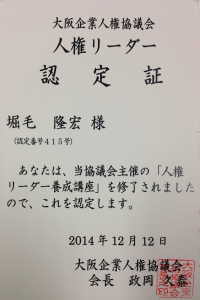 大阪企業人権協議会
人権リーダー
認定証
堀毛 隆宏 様
（認定番号４１５号）
あなたは、当協議会主催の「人権
リーダー養成講座」を修了されました
ので、これを認定します。
2014年12月12日
大阪企業人権協議会
会長 政岡 久嘉